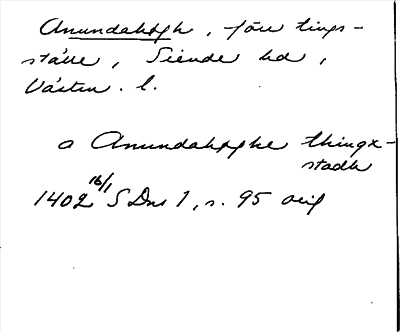 Anundahögh, före tings-
ställe, Siende hd,
Västm. l.
a Anundahøghe thingx-
stadh
1402 16/1 SDns 1, s. 95 orig